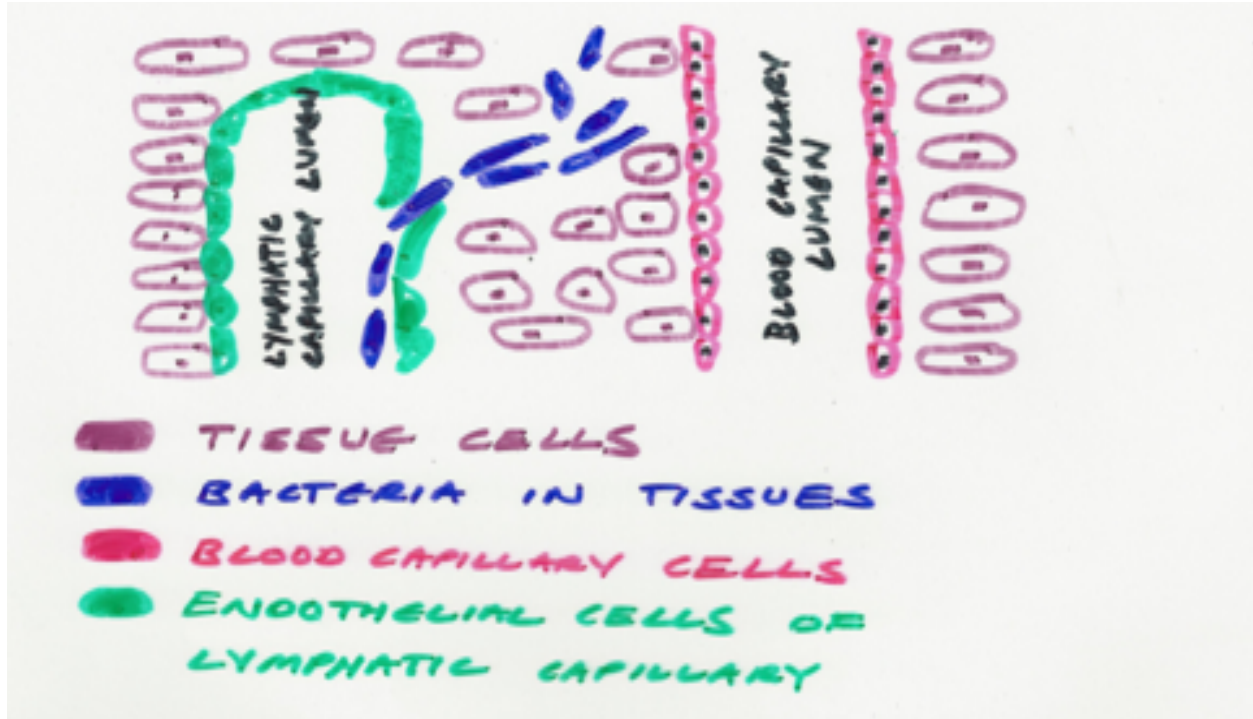 LYMPHATIC
CAPILLARY LUMEN
BLOOD CAPILLARY
LUMEN
TISSUE CELLS
BACTERIA IN TISSUES
BLOOD CAPILLARY CELLS
ENDOTHELIAL CELLS OF
LYMPHATIC CAPILLARY